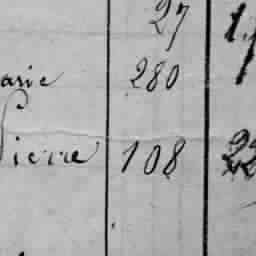 27
arie 280
Pierre 108 22